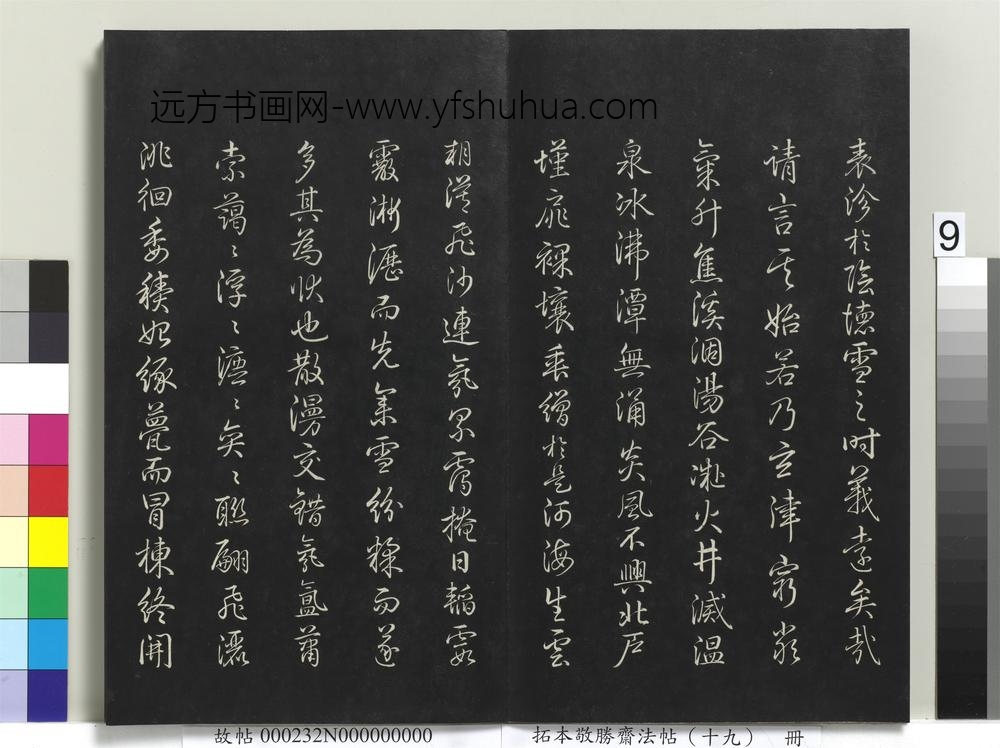 远方书画网-www.yfshuhua.com
袤沴於陰德雪之時義遠矣哉
請言其始若乃玄律窮嚴
氣升焦溪涸湯谷凝火井滅温
泉冰沸潭無涌炎風不興北戶
墐扉裸壤垂繒於是河海生雲
朔漠飛沙連氛累靄掩日韜霞
霰淅瀝而先集雪紛糅而遂
多其為狀也散漫交錯氛氳蕭
索藹〻浮〻瀌〻奕〻聯翩飛灑
徘徊委積始緣甍而冒棟終開
9
故帖 000232N000000000
拓本敬勝齋法帖（十九） 冊